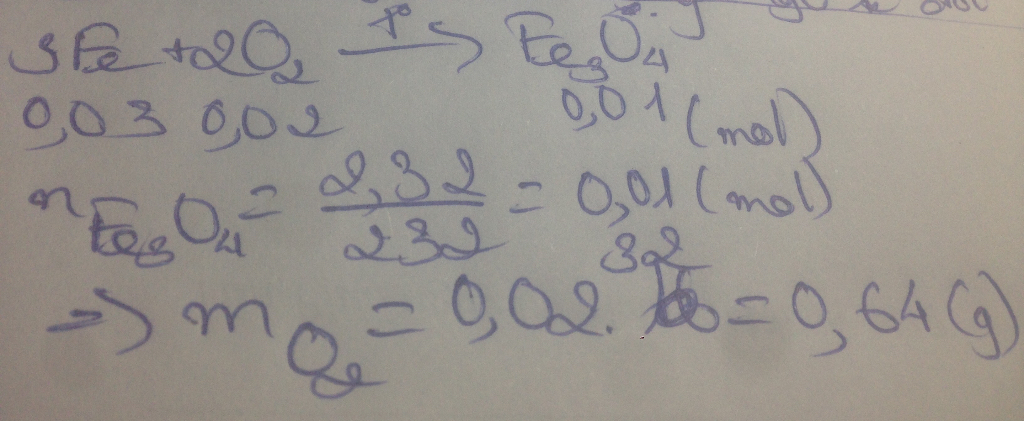 3Fe + 2O₂ —t°→ Fe₃O₄
0,03 0,02 0,01 (mol)
n Fe₃O₄ = 2,32 / 232 = 0,01 (mol)
32
=> m O₂ = 0,02. = 0,64 (g)